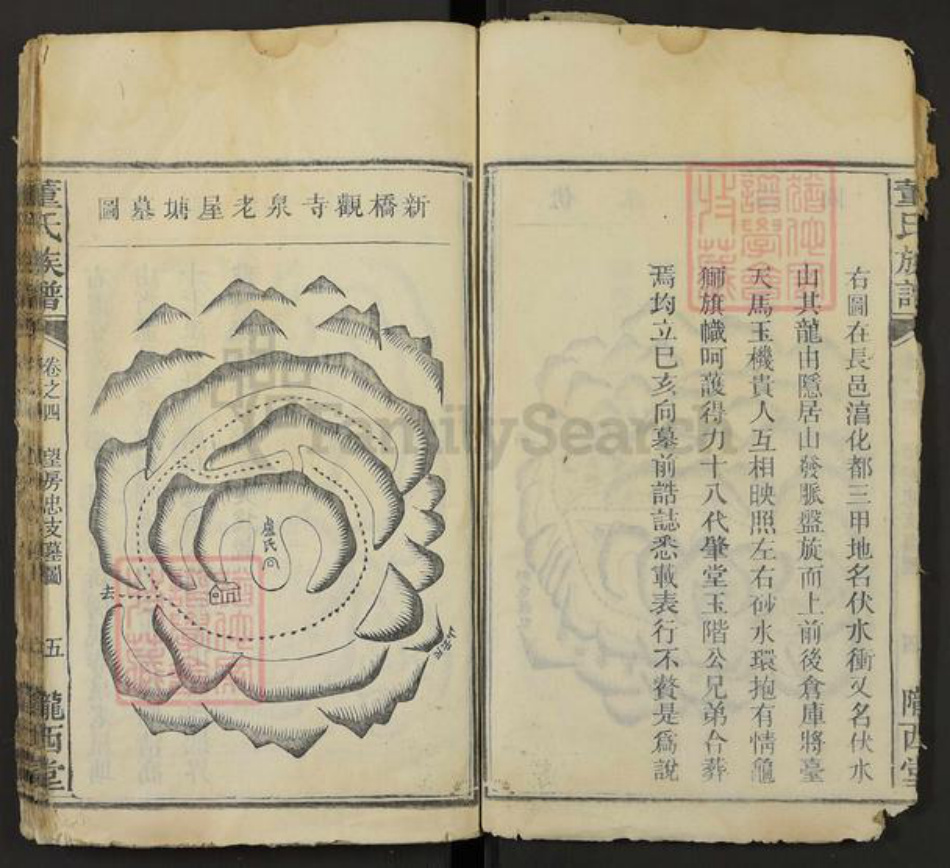 董氏族譜
隴西堂
右圖在長邑㵑化都三甲地名伏水衝又名伏水
山其龍由隱居山發脈盤旋而上前後倉庫將臺
天馬玉機貴人互相映照左右砂水環抱有情龜
獅旗幟呵護得力十八代肇堂玉階公兄弟合葬
焉均立巳亥向墓前誥誌悉載表行不贅是爲說
新橋觀寺泉老屋塘墓圖
盧氏
去
董氏族譜
卷之四
望房忠支墓圖
五
隴西堂
FamilySearch